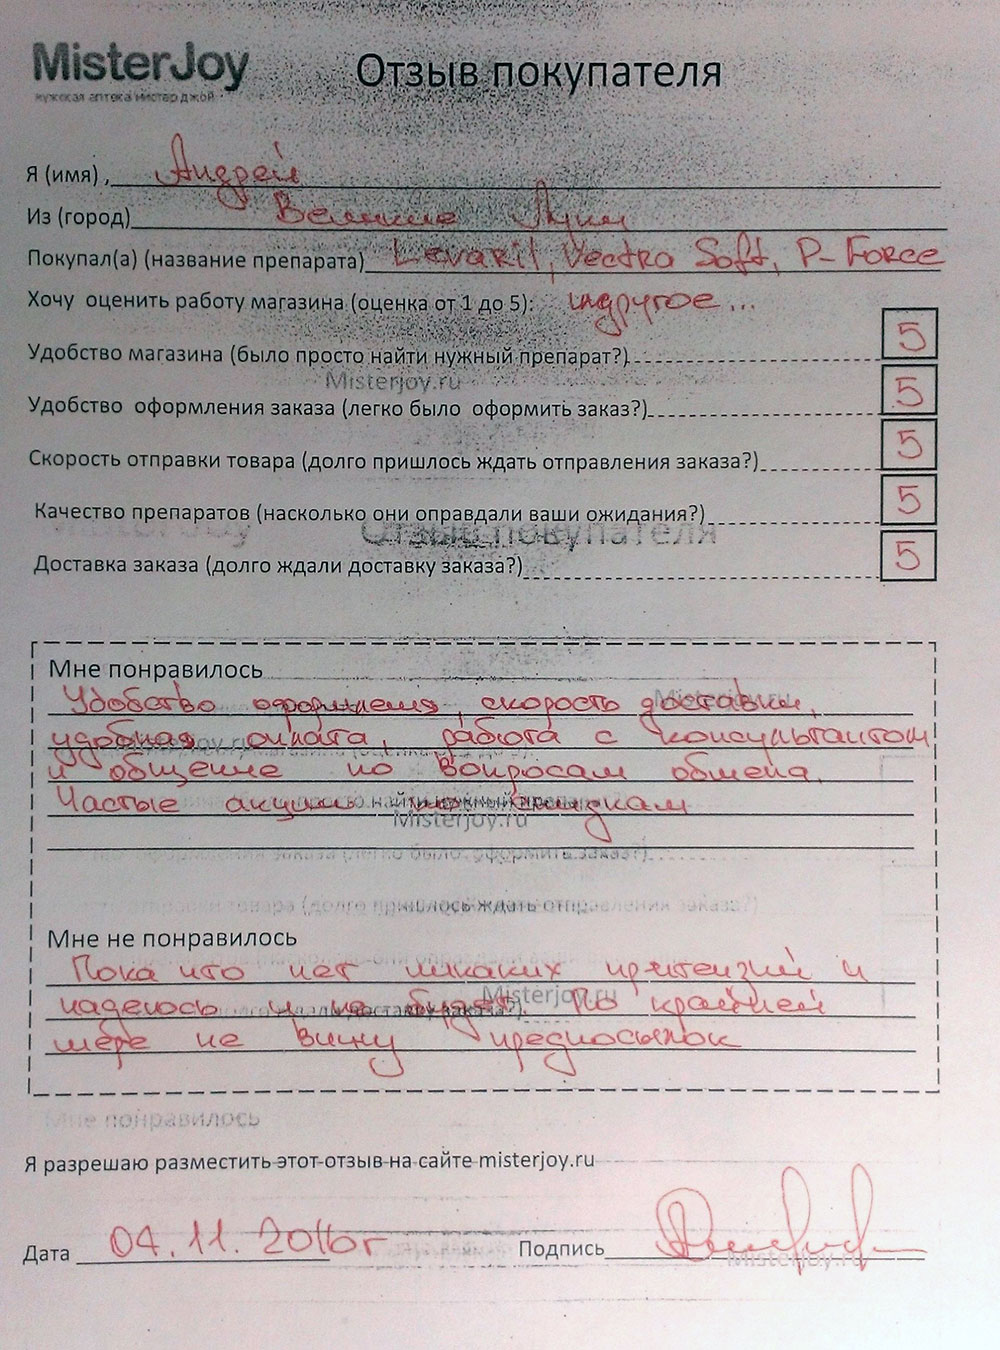 MisterJoy
мужская аптека мистер джой
Отзыв покупателя
Я (имя) , Андрей
Из (город) Великие Луки
Покупал(а) (название препарата) Levaril, Vectra Soft, P-Force
Хочу оценить работу магазина (оценка от 1 до 5): и другое...
Удобство магазина (было просто найти нужный препарат?) 5
Misterjoy.ru
Удобство оформления заказа (легко было оформить заказ?) 5
Скорость отправки товара (долго пришлось ждать отправления заказа?) 5
Качество препаратов (насколько они оправдали ваши ожидания?) 5
Отзыв покупателя
Доставка заказа (долго ждали доставку заказа?) 5
Мне понравилось
Misterjoy.ru
Удобство оформления, скорость доставки,
удобная оплата, работа с консультантом
и общение по вопросам обмена.
Частые акции по скидкам
Misterjoy.ru
Мне не понравилось
Пока что нет никаких притензий и
Misterjoy.ru
надеюсь и не будет. По крайней
мере не вижу предпосылок
Мне понравилось
Я разрешаю разместить этот отзыв на сайте misterjoy.ru
Дата 04.11.2016г Подпись
Misterjoy.ru